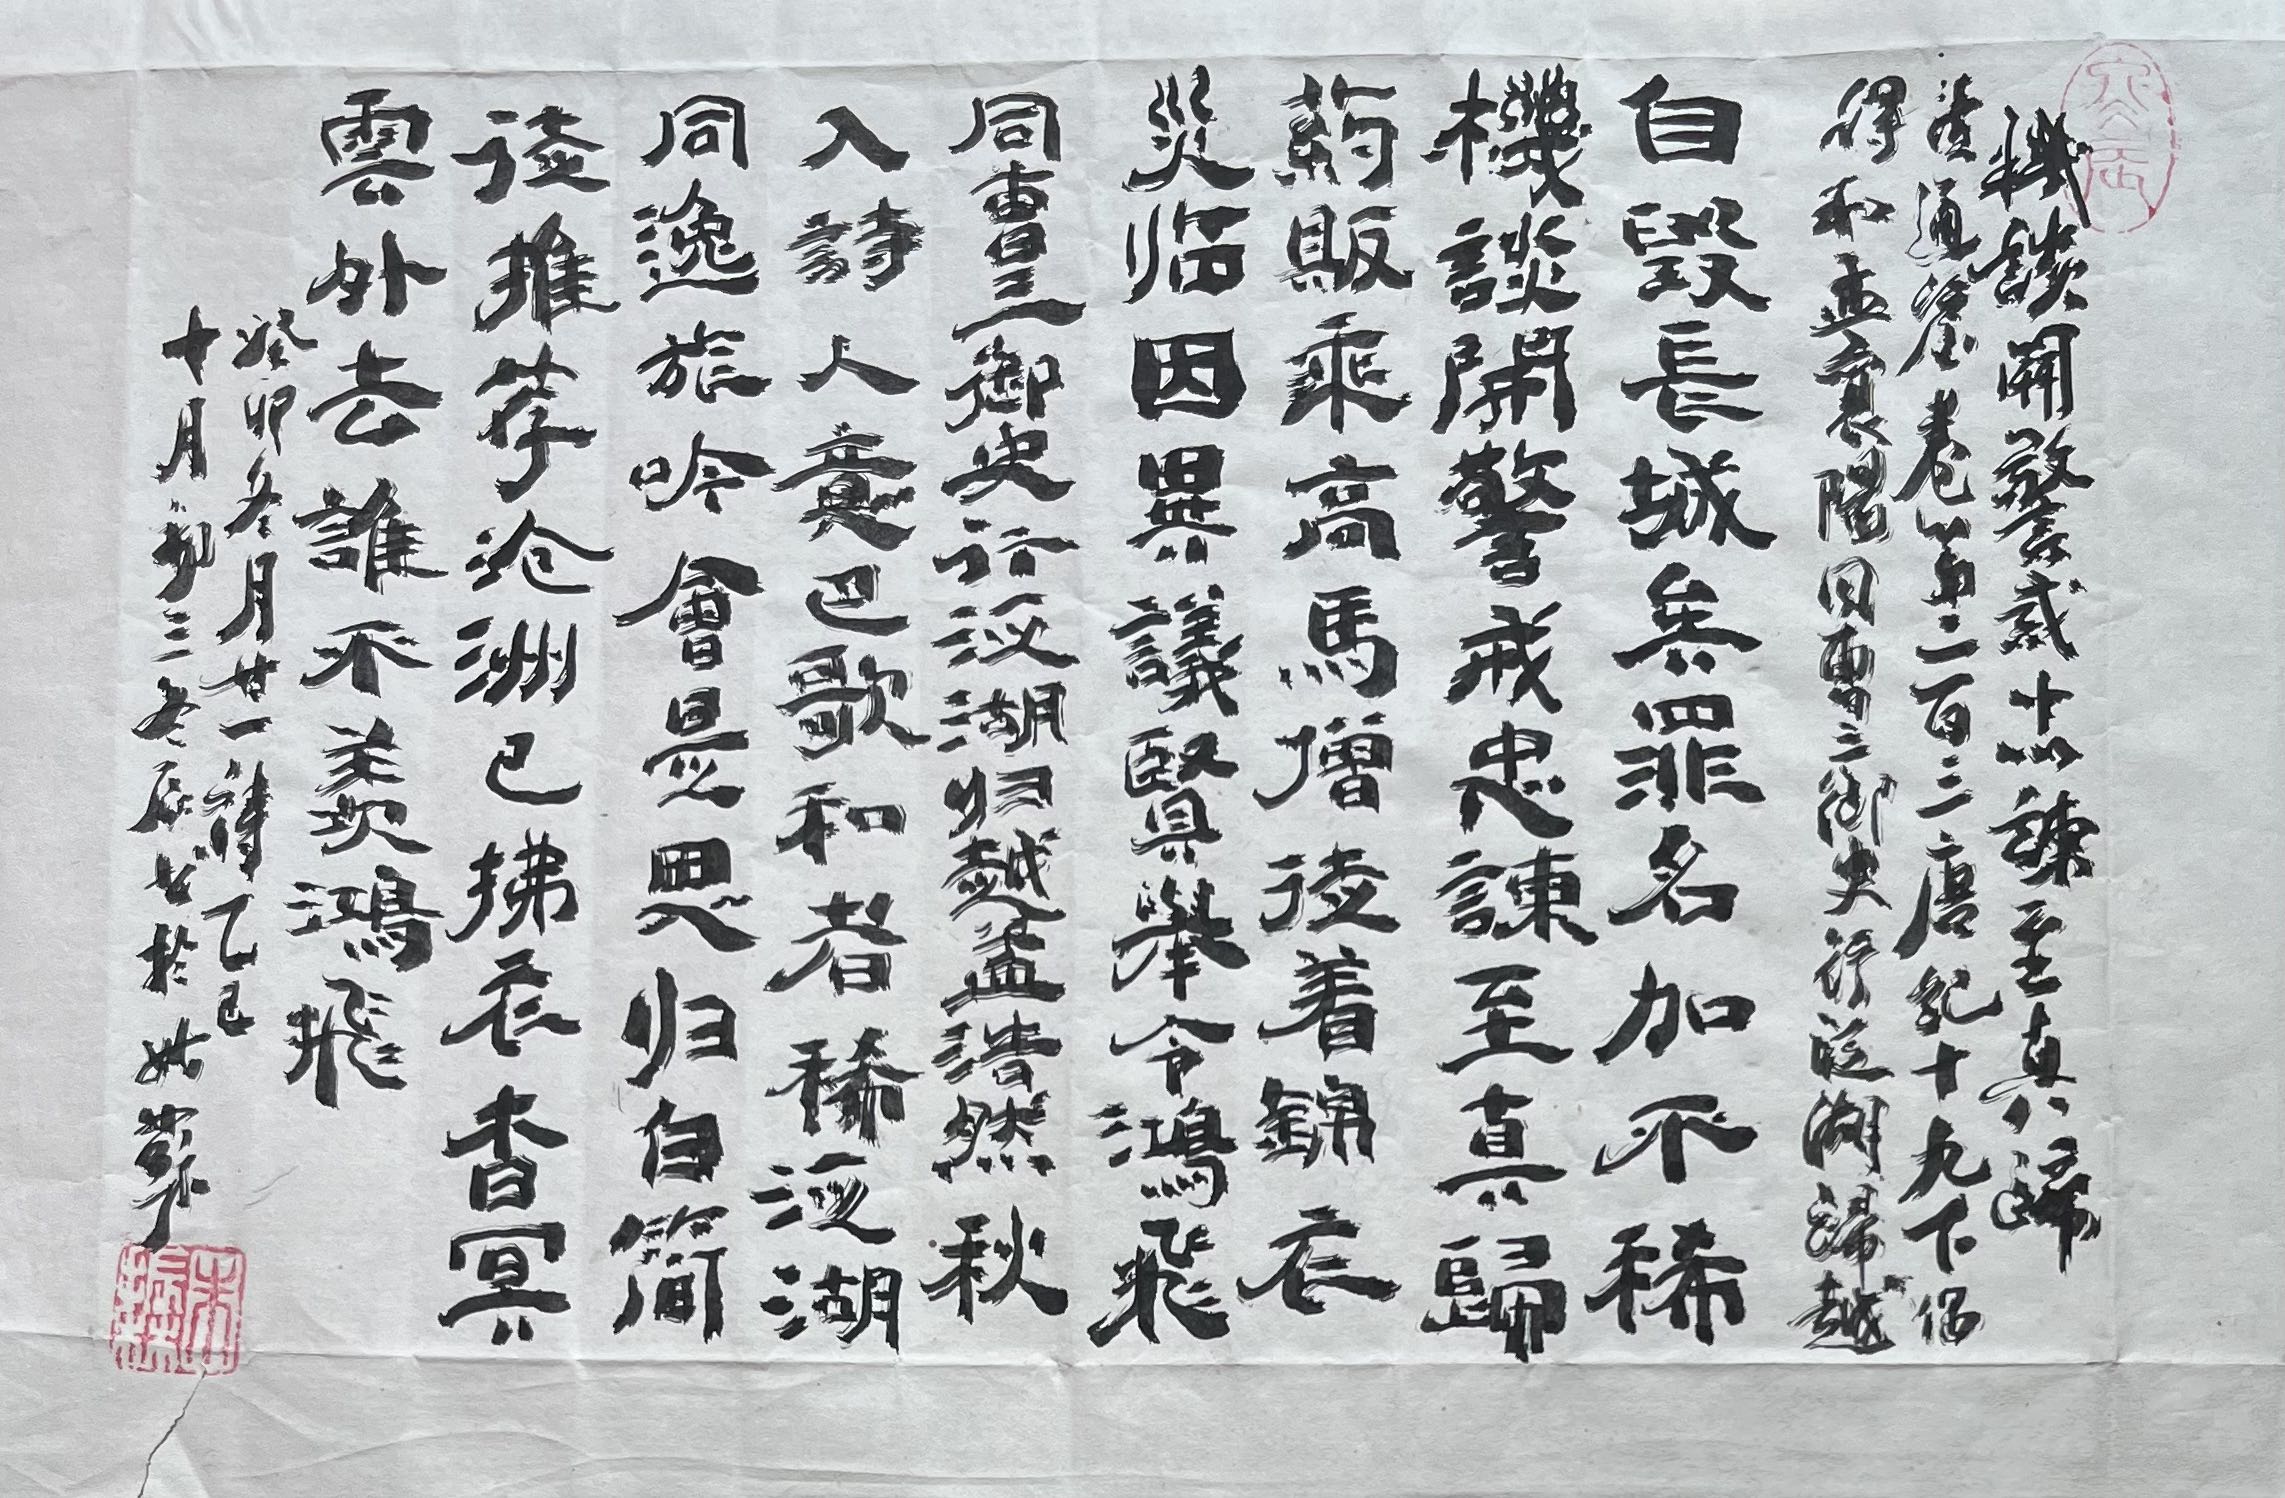 機談開警戒忠諫至真歸
讀通鑒卷第二百三唐紀十九下偶
得和孟襄陽同曹三御史行泛湖歸越
自毀長城矣罪名加不稀
機談開警戒忠諫至真歸
葯販乘高馬僧徒着錦衣
災临因異議賢舉令鴻飛
同曹三御史行泛湖归越孟浩然秋
入詩人意巴歌和者稀泛湖
同逸旅吟會是思归白简
徒推荐沧洲已拂衣杳冥
雲外去誰不羡鴻飛
癸卯冬月廿一待乙巳
十月初三冬辰書於姑蘇